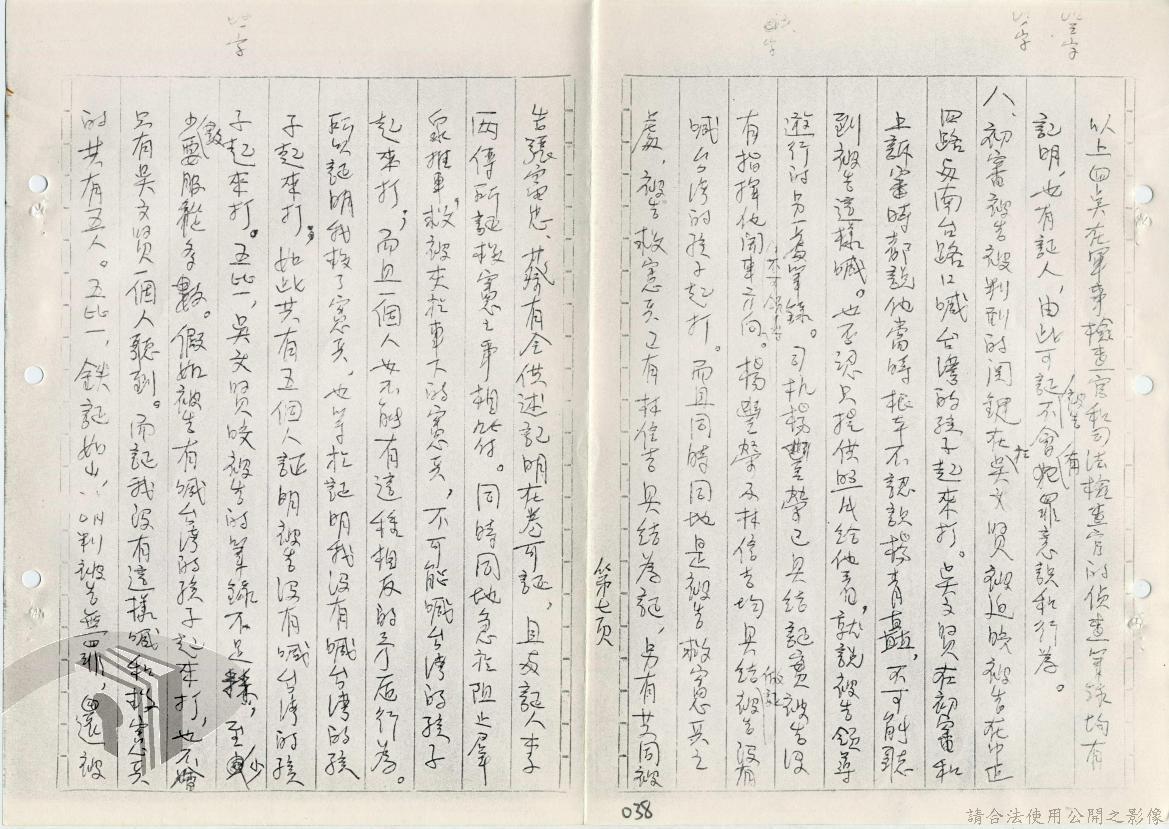 以上四點在軍事檢查官和司法檢查官的偵查筆錄均有
記明,也有証人,由此可証被告不會有犯罪意識和行為。
八、初審被告被判刑的関鍵在於吳文賢被迫咬被告在中正
四路与南台路口喊台灣的孩子起來打。吳文賢在初審和
上訴審時都說他當時根本不認識楊青矗,不可能聽
到被告這樣喊。也否認只提供照片給他看,就說被告領導
遊行的另一處筆錄。司机楊豐榮已具结記實被告没
有指揮他開車方向。楊豐榮及林信吉均具结被告没有
喊台灣的孩子起打。而且同時同地是被告救憲兵之
處,被告救憲兵已有林信吉具结為証,另有共同被
第七頁
告張富忠、蔡有全供述記明在卷可証,且友証人李
兩傳所証救憲兵事相符。同時同地急於阻止羣
眾推車,救被夾於車下的憲兵,不可能喊台灣的孩子
起來打;而且一個人也不能有這種相反的矛盾行為。
所以証明我救了憲兵,也等於証明我没有喊台灣的孩
子起來打,如此共有五個人証明被告没有喊台灣的孩
子起來打。五比一,吳文賢咬被告的筆錄不足採,至少
少數要服從多數。假如被告有喊台灣的孩子起來打,也不會
只有吳文賢一個人聽到。而証我没有這樣喊和救憲兵
的共有五人。五比一,鉄証如山,以判被告無罪,還被
038
請合法使用公開之影像